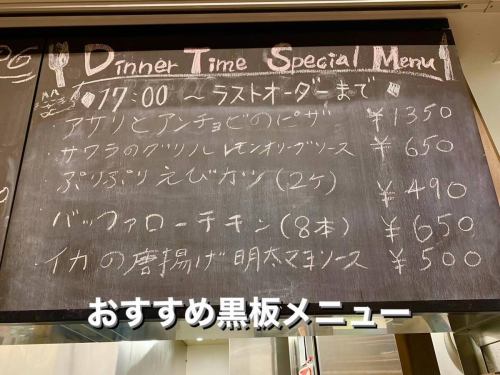 Dinner Time Special Menu
17:00 〜 ラストオーダーまで
・アサリとアンチョビのピザ ¥1350
・サワラのグリル レモンオリーブソース ¥650
・ぷりぷりえびカツ(2ケ) ¥490
・バッファローチキン(8本) ¥650
・イカの唐揚げ 明太マヨソース ¥500
おすすめ黒板メニュー